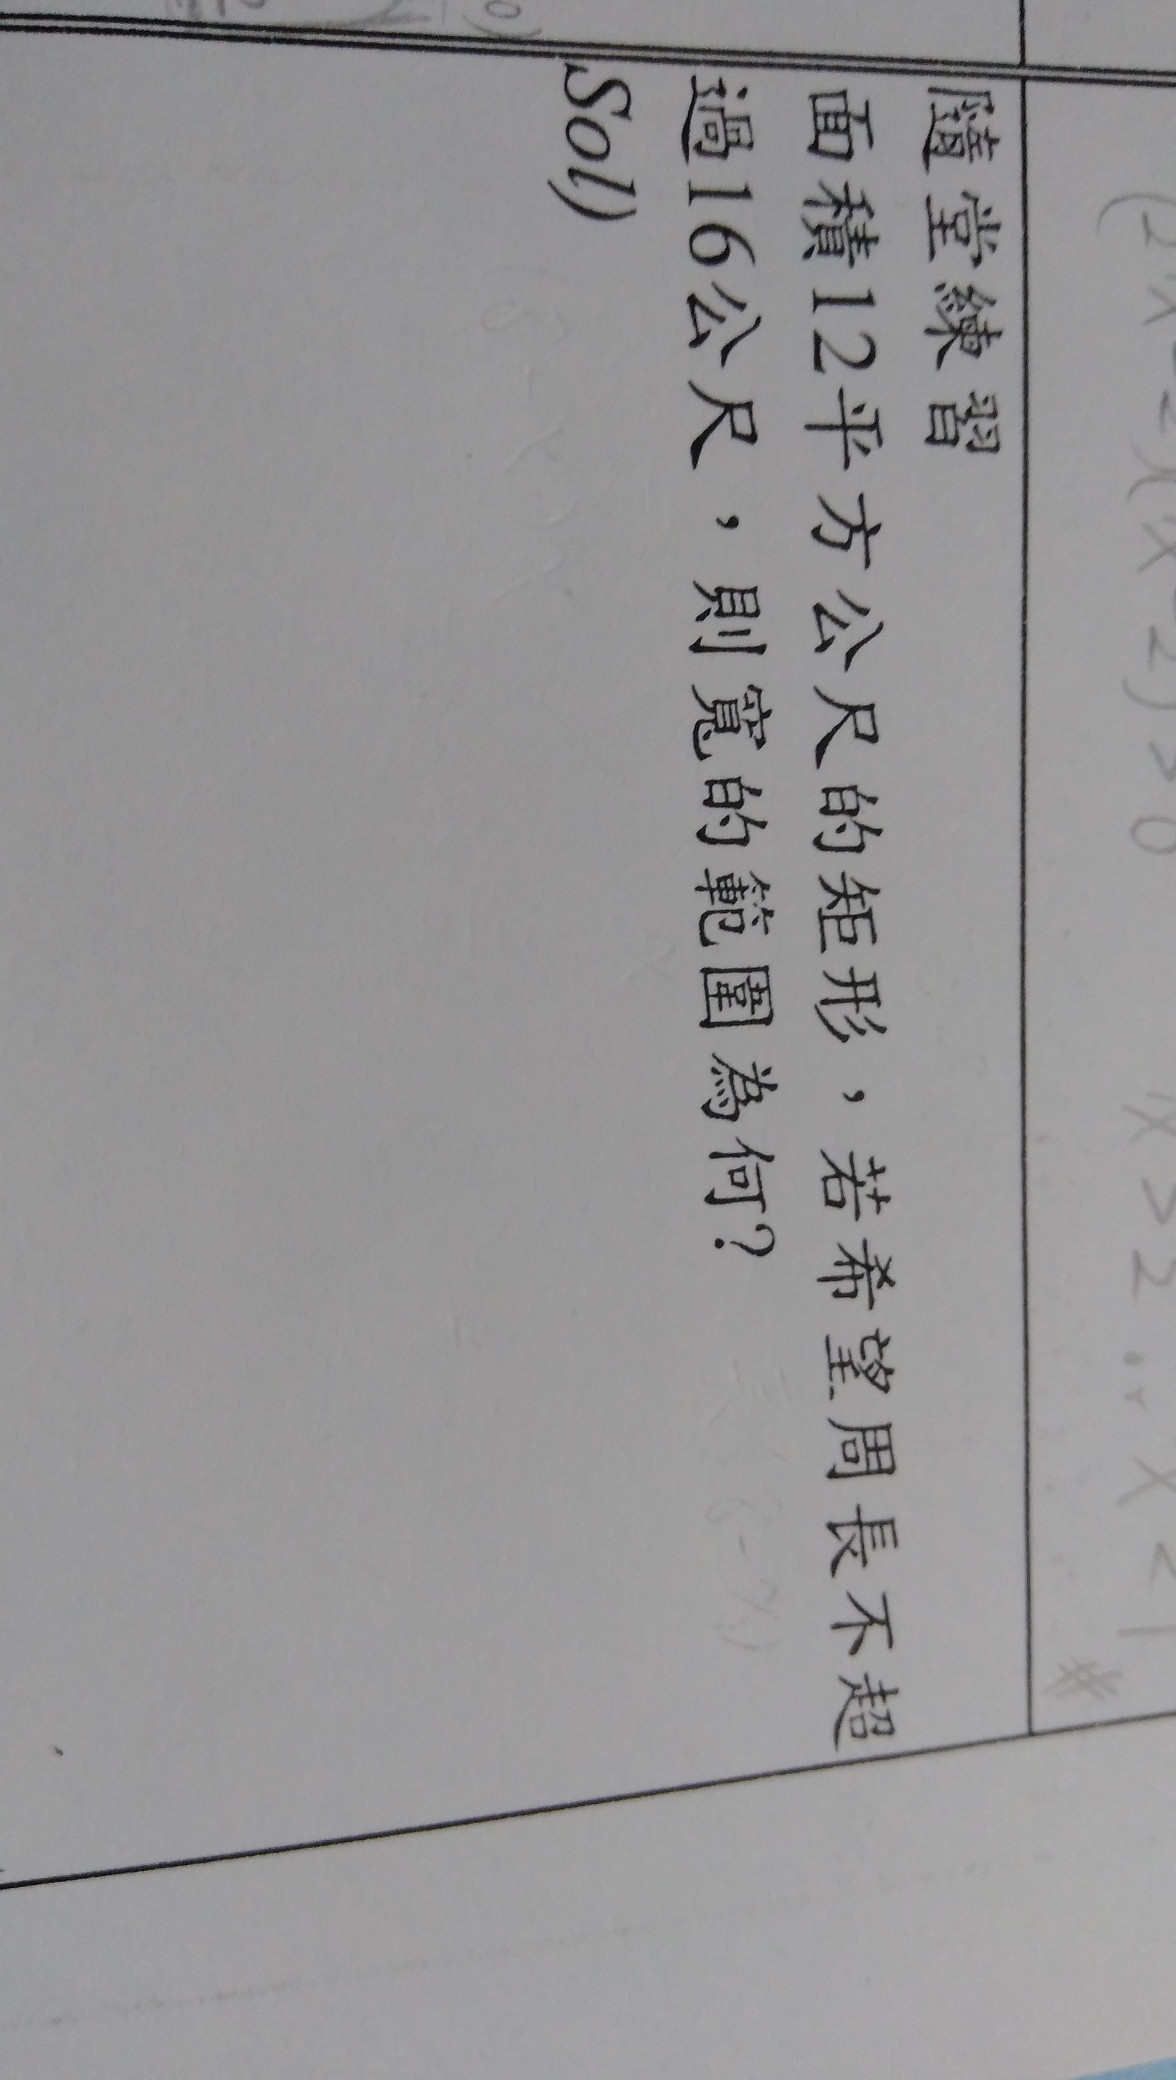 (2x-2)(x-2)>0
x>2 or x<1 #
隨堂練習
面積12平方公尺的矩形，若希望周長不超
過16公尺，則寬的範圍為何?
Sol)